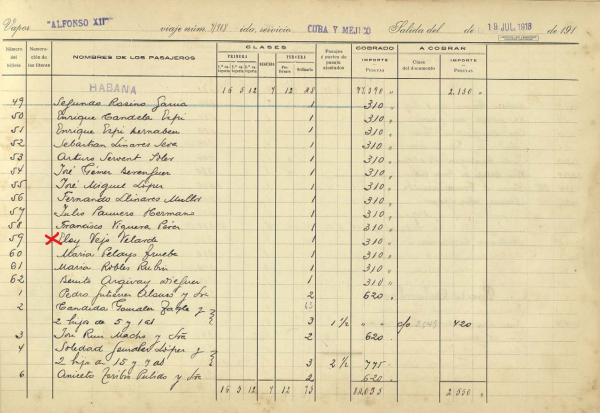 Vapor "ALFONSO XII" viaje núm. ida, servicio CUBA Y MEJICO Salida del de 19 JUL. 1918 de 191
Número del billete Numeración de las literas NOMBRES DE LOS PASAJEROS CLASES PRIMERA SEGUNDA TERCERA Ordinaria COBRADO IMPORTE Pesetas A COBRAR Clase del documento IMPORTE Pesetas
HABANA 16 5 12 7 12 2.130 "
49 Segundo Rosino Garcia 1 310 "
50 Enrique Candela Espi 1 310 "
51 Enrique Espi 1 310 "
52 Sebastian Linares 1 310 "
53 Arturo Servent Soler 1 310 "
54 José Gomez Berenguer 1 310 "
55 José Miguel Lopez 1 310 "
56 Fernando Llinares Mullor 1 310 "
57 Julio Hermano 1 310 "
58 Francisco Viguera Perez 1 310 "
59 Eloy Vejo Velarde 1 310 "
60 Maria Pelayo 1 310 "
61 Maria Robles Rubin 1 310 "
62 Benito 1 310 "
1 Pedro Gutierrez y Sra 2 620 "
2 Candida Gonzalez y
2 hijos de 5 y 3 1 1/2 " " c/o 420
3 José Ruiz Macho y Sra 2 620 "
4 Soledad Gonzalez Lopez y
2 hijos de 15 y 7 3 2 1/2 775 "
6 Aniceto Pulido y Sra 2 620 "
16 5 12 7 12 73 2.550 "